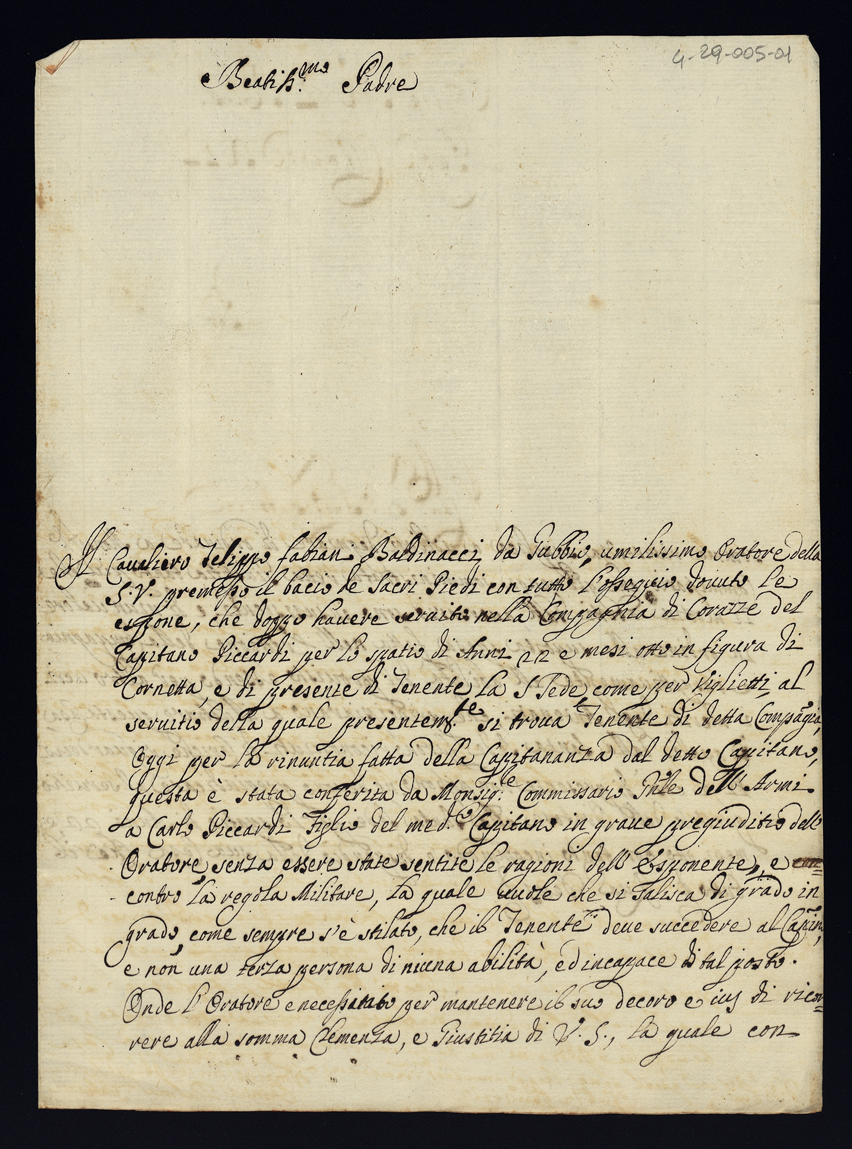 4-29-005-01
Beatiss.mo Padre
Il Cavaliero Felippo fabiani Baldinacci da Gubbio, umilissimo Oratore della
S. V. premesso il bacio de Sacri Piedi con tutto l'ossequio dovuto le
espone, che doppo havere servito nella Compagnia di Corazze del
Capitano Piccardi per lo spatio di Anni 22 e mesi otto in figura di
Cornetta, e di presente di Tenente la S. Sede, come per viglietti al
servitio della quale presentem.te si trova Tenente di detta Compagia,
Oggi per la rinuntia fatta della Capitananza dal detto Capitano,
questa è stata conferita da Monsig.e Commissario Gnle dell'Armi
a Carlo Piccardi Figlio del med.o Capitano in grave pregiuditio dell'
Oratore senza essere state sentite le ragioni dell'Esponente, e
contro la regola Militare, la quale vuole che si Salisca di grado in
grado, come sempre s'è stilato, che il Tenente deve succedere al Capitno,
e non una terza persona di niuna abilità, ed incapace di tal posto.
Onde l'Oratore e necessitato per mantenere il suo decoro e ius di ricor=
rere alla somma Clemenza, e Giustitia di V. S., la quale con